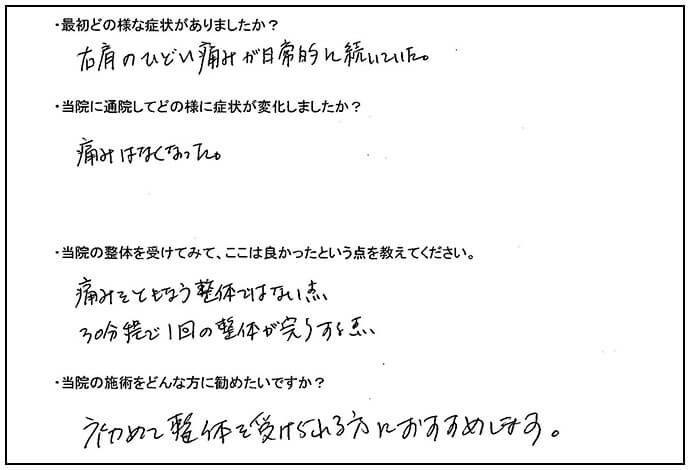 ・最初どの様な症状がありましたか？
右肩のひどい痛みが日常的に続いていた。
・当院に通院してどの様に症状が変化しましたか？
痛みはなくなった。
・当院の整体を受けてみて、ここは良かったという点を教えてください。
痛みをともなう整体ではない点、
30分程で1回の整体が完了する点、
・当院の施術をどんな方に勧めたいですか？
初めて整体を受けられる方におすすめします。